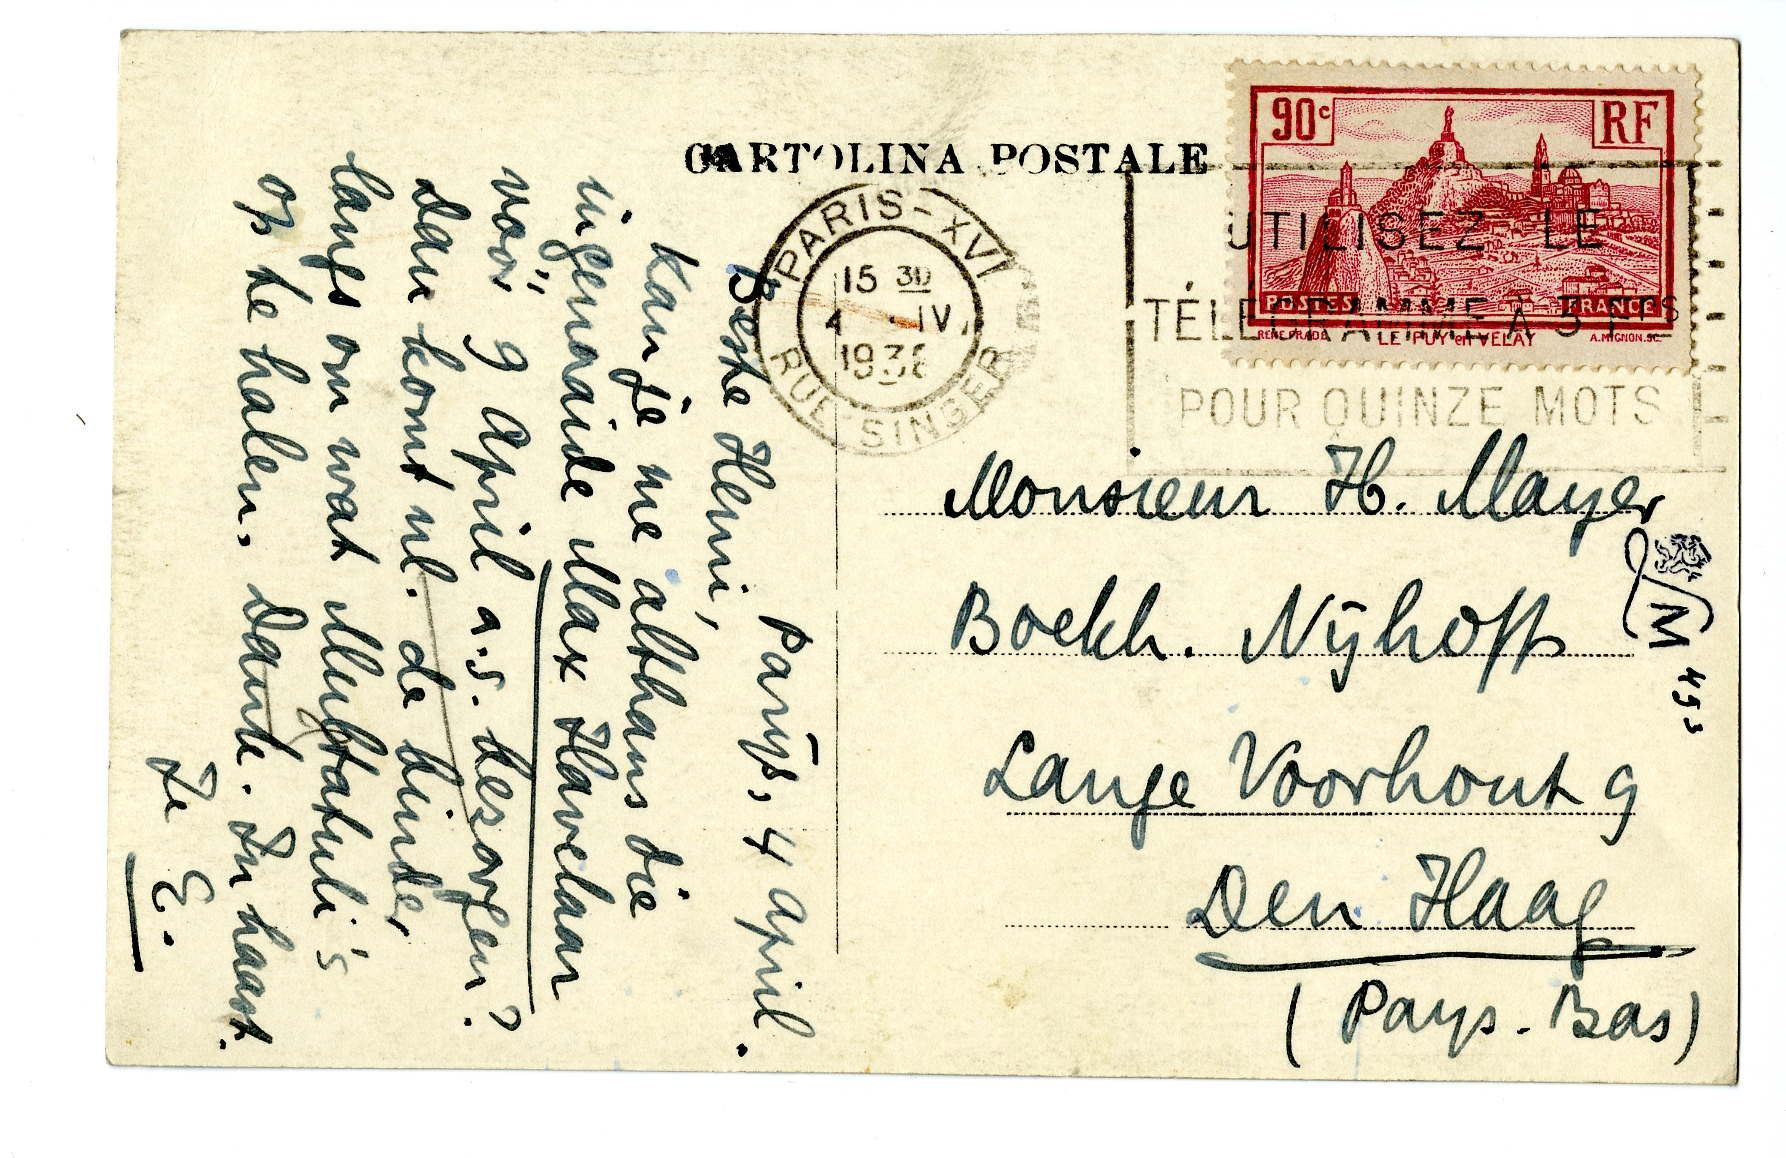 CARTOLINA POSTALE
90c
RF
POSTES
FRANCE
LE PUY en VELAY
A.MIGNON.SC.
PARIS-XVI
15 30
4 -IV
RUE SINGER
UTILISEZ LE
TÉLÉGRAMME À 3 Frcs
POUR QUINZE MOTS
Parijs, 4 April.
Beste Henri,
Kan je me althans die
ingenaaide Max Havelaar
vóór 9 April a.s. bezorgen?
dan komt nl. de binder
langs om wat Multatuli's
op te halen. Dank. In haast.
Je E.
Monsieur H. Mayer
Boekh. Nijhoff
Lange Voorhout 9
Den Haag
(Pays-Bas)
M